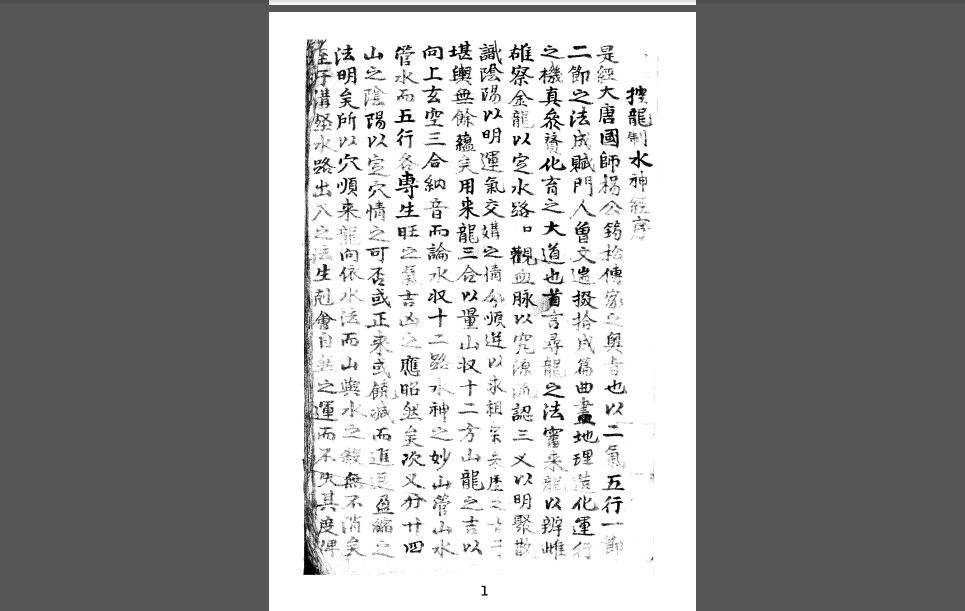 控龍制水神經序
是經大唐國師楊公筠松傳家之奧旨也以二氣五行一節
二節之法成賦門人曾文遄掇拾成篇曲盡地理造化運行
之機真叅賛化育之大道也首言尋龍之法審来龍以辨雌
雄察金龍以定水路口觀血脉以究源流認三义以明聚散
識陰陽以明運氣交媾之情分順逆以求祖宗来歷之
堪輿無餘蘊矣用来龍三合以量山収十二方山龍之吉以
向上玄空三合納音而論水収十二路水神之妙山管山水
管水而五行各專生旺之氣吉凶之應昭然矣次又分廿四
山之陰陽以定穴情之可否或正来或饒减而進退盈縮之
法明矣所以穴順来龍向依水法而山與水之殺無不消矣
至于溝壑水路出入之法生剋會自然之運而不失其度俾
1